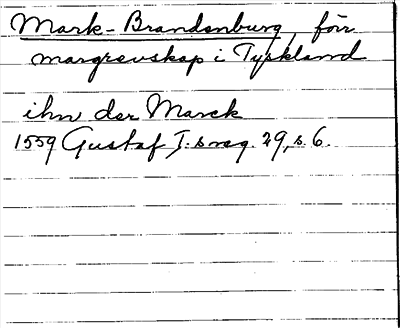 Mark-Brandenburg, förr
margrevskap i Tyskland
ihn der Marck
1559 Gustaf I:s reg. 29, s. 6.